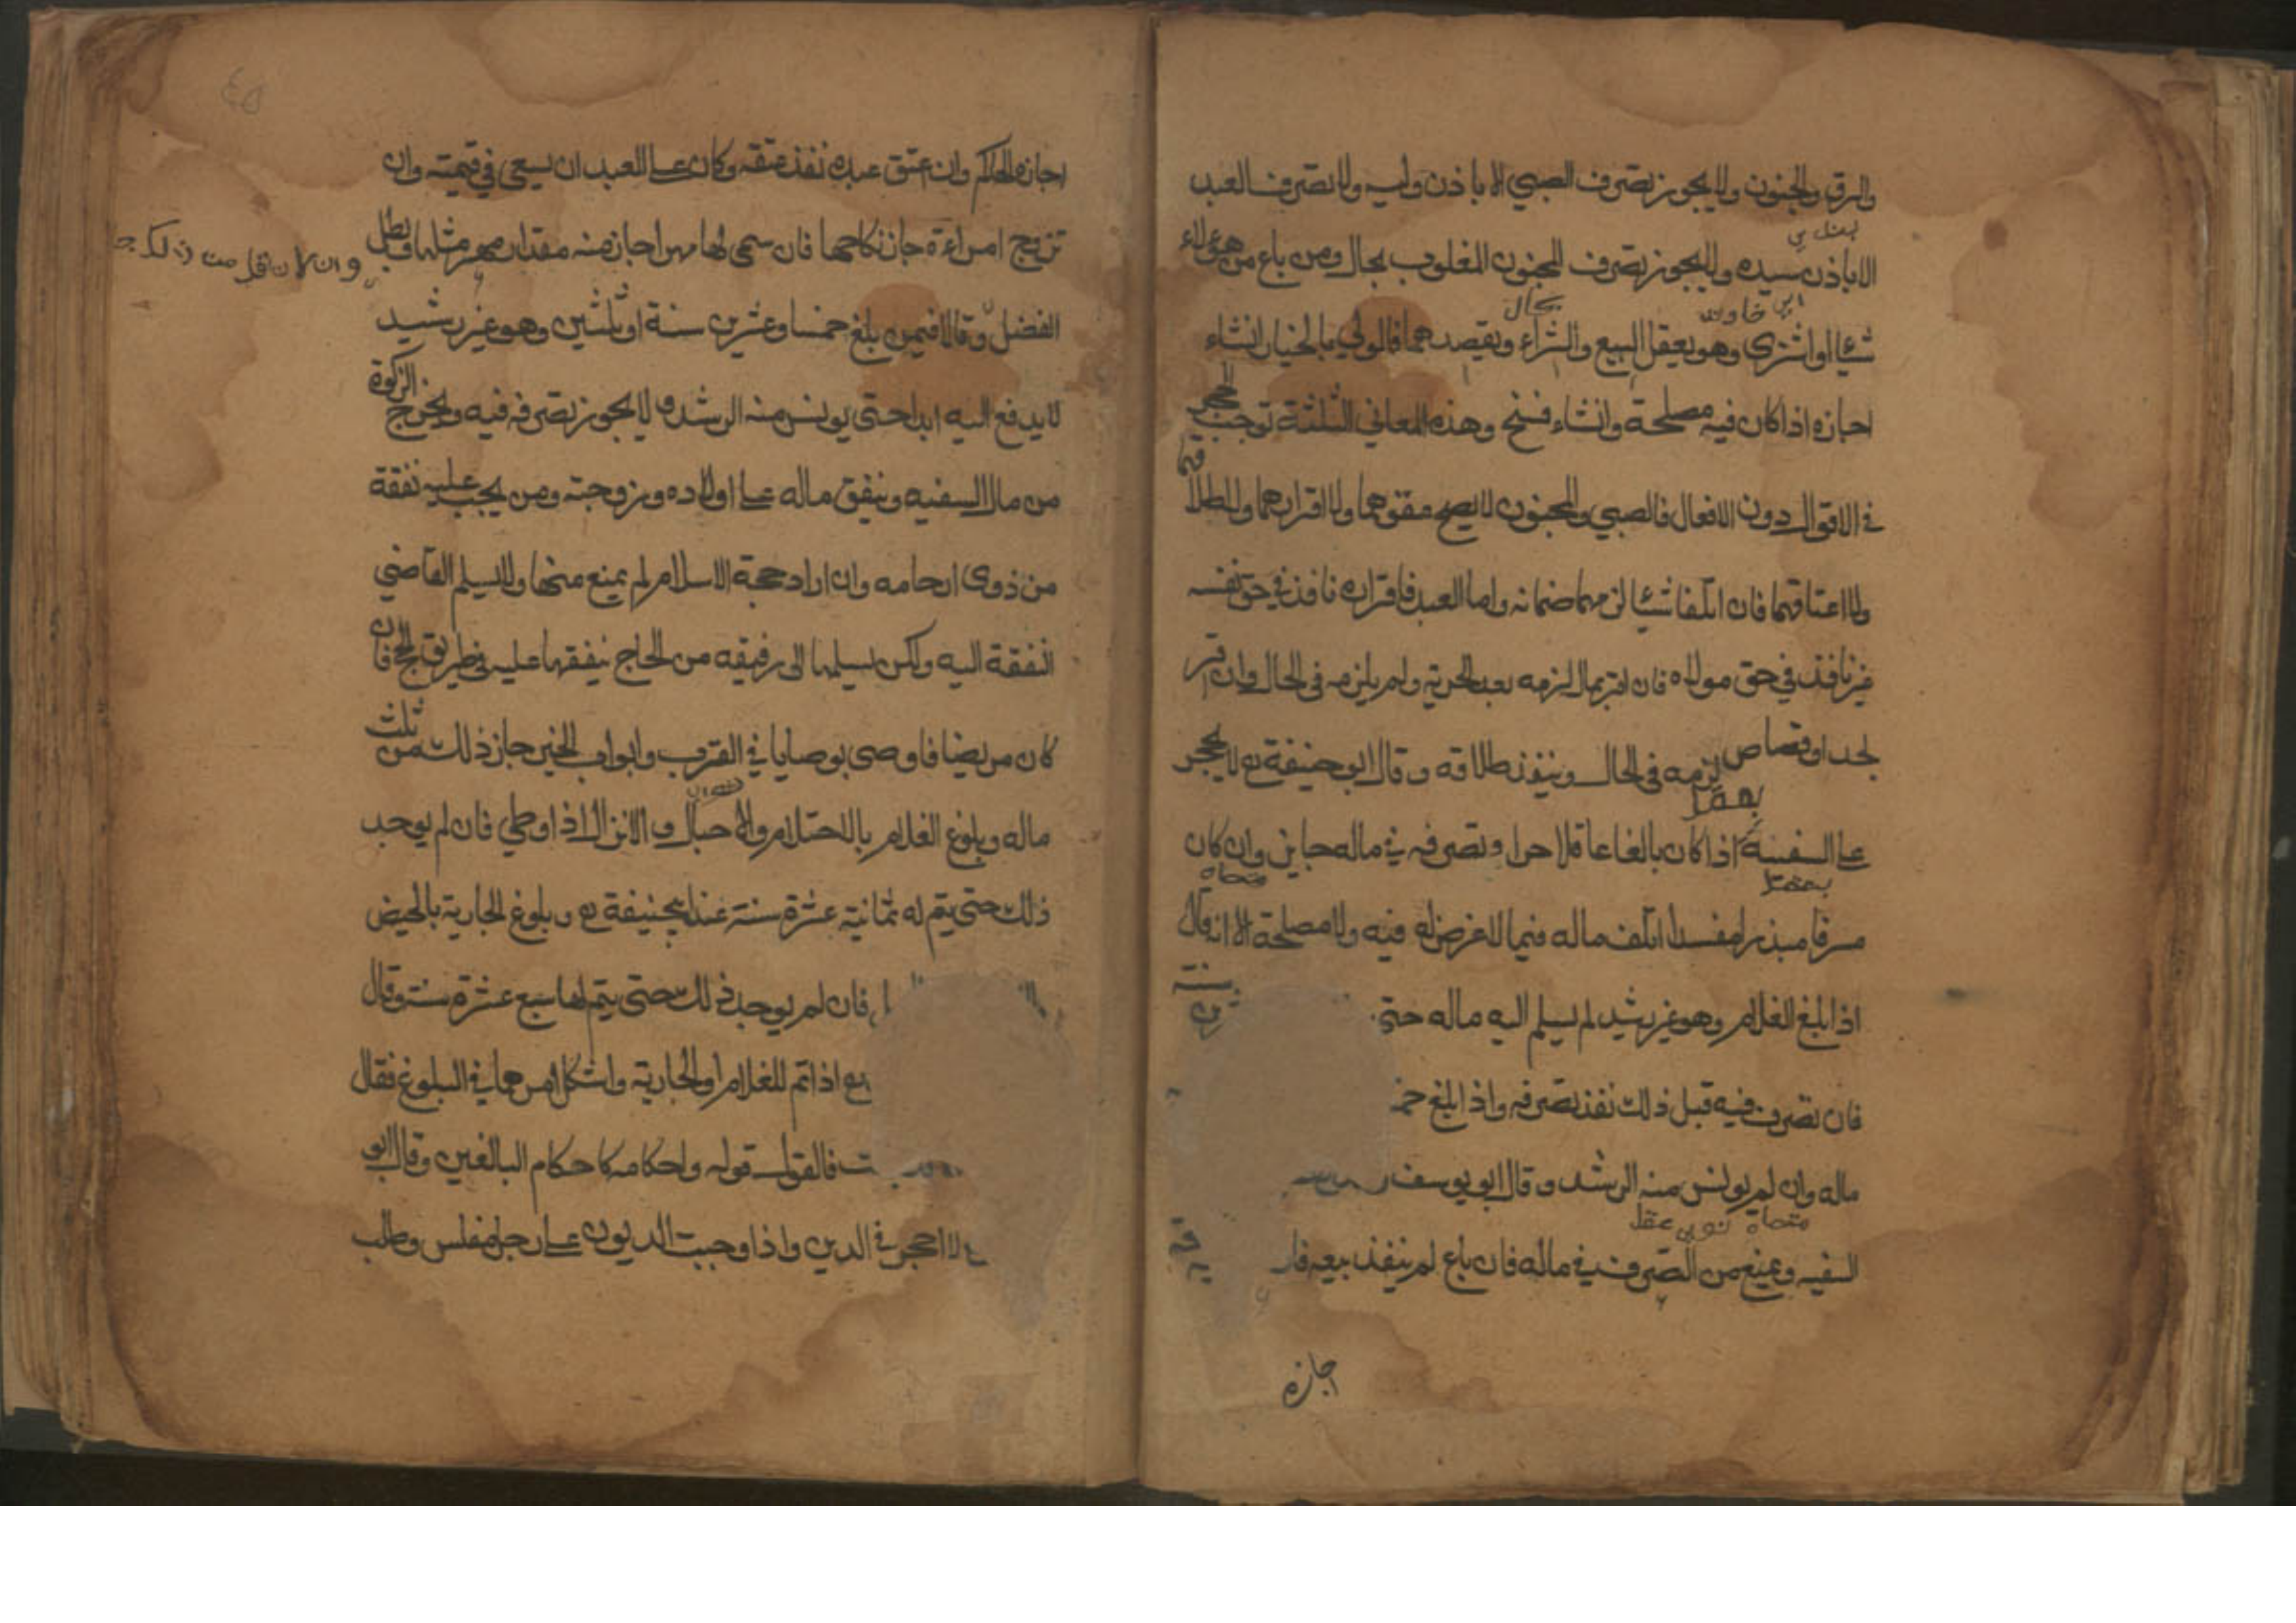 والرق والجنون ولا يجوز تصرف الصبي الا باذن وليه ولا تصرف العبد
الا باذن سيده ولا يجوز تصرف المجنون المغلوب بحال ومن باع من هؤلاء
شيئا او اشترى وهو يعقل البيع والشراء ويقصدهما فالولي بالخيار انشاء
اجازه اذا كان فيه مصلحة وانشاء فسخ وهذه المعاني الثلثة توجب الحجر
في الاقوال دون الافعال فالصبي والمجنون لا يصح عقودهما ولا اقرارهما ولا طلاقهما
ولا اعتاقهما فان اتلفا شيئا لزمهما ضمانه واما العبد فاقراره نافذ في حق نفسه
غير نافذ في حق مولاه فان اقر بمال لزمه بعد الحرية ولم يلزمه في الحال وان اقر
بحد او قصاص لزمه في الحال وينفذ طلاقه وقال ابو حنيفة رح لا يحجر
على السفيه اذا كان بالغا عاقلا حرا وتصرفه في ماله جايز وان كان
مسرفا مبذرا مفسدا اتلف ماله فيما لا غرض له فيه ولا مصلحة الا انه قال
اذا بلغ الغلام وهو غير رشيد لم يسلم اليه ماله حتى سنة
فان تصرف فيه قبل ذلك نفذ تصرفه واذا بلغ
ماله وان لم يونس منه الرشد وقال ابو يوسف
السفيه ويمنع من التصرف في ماله فان باع لم ينفذ بيعه
اجازه
٤٥
اجازه الحاكم وان عتق عبده نفذ عتقه وكان على العبد ان يسعى في قيمته وان
تزوج امراءة جاز نكاحها فان سمى لها مهرا جاز منه مقدار مهر مثلها وبطل
وان كان اقل من ذلك
الفضل وقالا فيمن بلغ خمسا وعشرين سنة او ثلثين وهو غير رشيد
لا يدفع اليه ابدا حتى يونس منه الرشد ولا يجوز تصرفه فيه ويخرج الزكوة
من مال السفيه وينفق ماله على اولاده وزوجته ومن يجب عليه نفقة
من ذوي ارحامه وان اراد حجة الاسلام لم يمنع منها ولا يسلم القاضي
النفقة اليه ولكن يسلمها الى رفيقه من الحاج ينفقها عليه في طريق الحج فان
كان مريضا فاوصى بوصايا في القرب وابواب الخير جاز ذلك من ثلث
ماله وبلوغ الغلام بالاحتلام والاحبال والانزال اذا وطي فان لم يوجد
ذلك حتى يتم له ثمانية عشرة سنة عند ابيحنيفة رح وبلوغ الجارية بالحيض
فان لم يوجد ذلك حتى يتم لها سبع عشرة سنة وقال
رح اذا تم للغلام او الجارية واشكل امرهما في البلوغ فقال
فالقول قوله واحكامه كاحكام البالغين وقال ابو
لا احجر في الدين واذا وجبت الديون على رجل مفلس وطلب